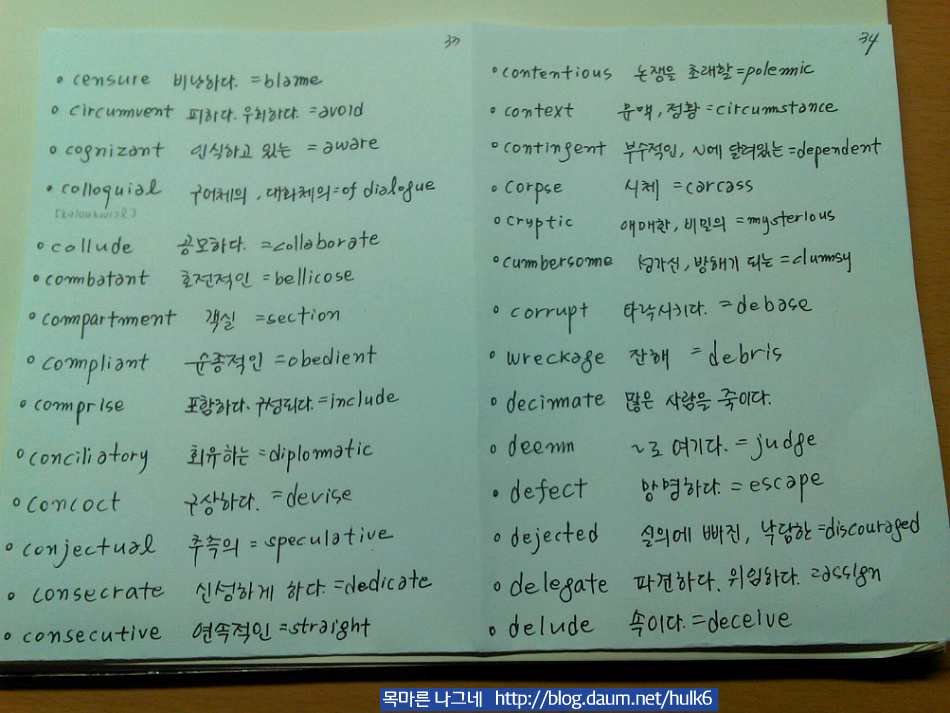 33
• censure 비난하다. =blame
• circumvent 피하다. 우회하다. =avoid
• cognizant 인식하고 있는 = aware
• colloquial 구어체의, 대화체의 =of dialogue
• collude 공모하다. =collaborate
• combatant 호전적인 =bellicose
• compartment 객실 =section
• compliant 순종적인 =obedient
• comprise 포함하다. 구성되다. =include
• conciliatory 회유하는 =diplomatic
• concoct 구상하다. =devise
• conjectual 추측의 = speculative
• consecrate 신성하게 하다. =dedicate
• consecutive 연속적인 =straight
34
• contentious 논쟁을 초래할 =polemic
• context 문맥, 정황 =circumstance
• contingent 부수적인, ~에 달려있는 =dependent
• corpse 시체 =carcass
• cryptic 애매한, 비밀의 =mysterious
• cumbersome 성가신, 방해가 되는 =clumsy
• corrupt 타락시키다. =debase
• wreckage 잔해 =debris
• decimate 많은 사람을 죽이다.
• deemn ~로 여기다. = judge
• defect 망명하다. = escape
• dejected 실의에 빠진, 낙담한 =discouraged
• delegate 파견하다. 위임하다. =assign
• delude 속이다. =deceive
목마른 나그네 http://blog.daum.net/hulk6